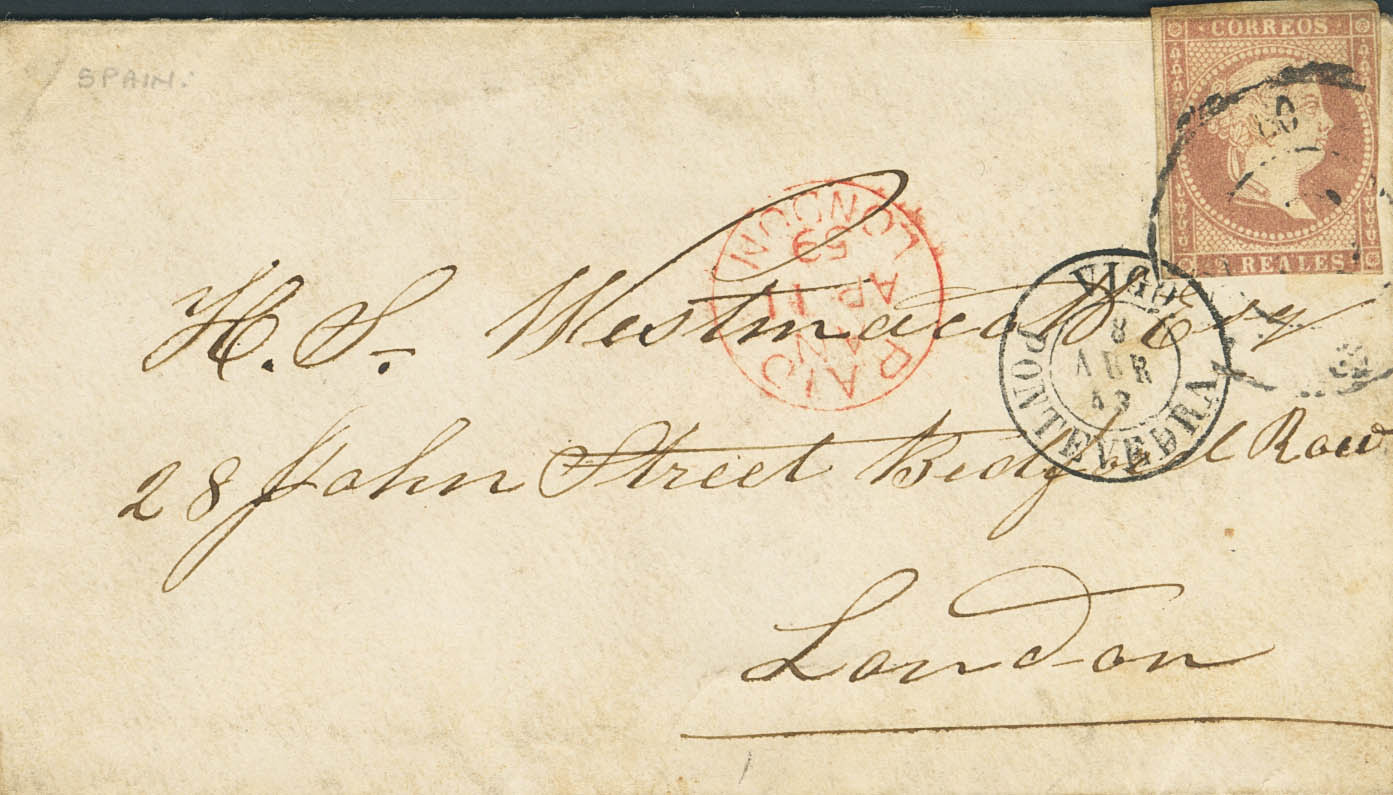 SPAIN.
CORREOS
REALES
LONDON
59
AP 11
PAID
VIGO
8
ABR
PONTEVEDRA
H. S. Westmacott Esq
28 John Street Bedford Row
London